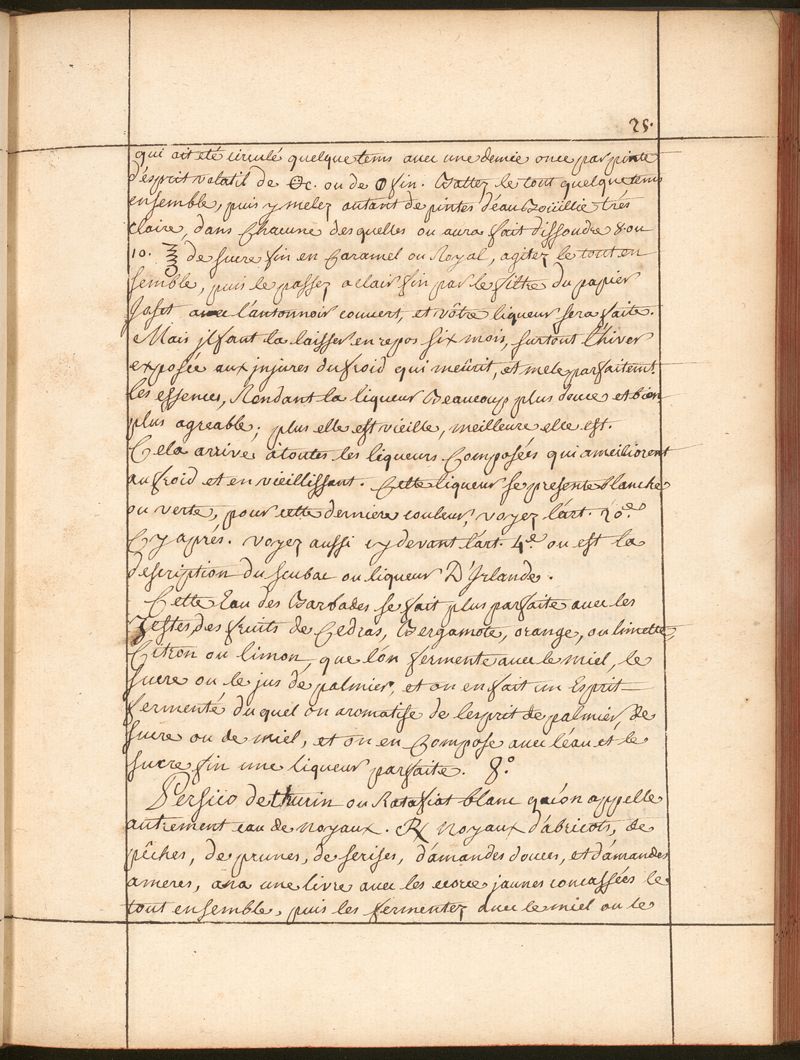 25.
qui ait été circulé quelque tems avec une demie once par pinte
d'ésprit volatil de Θc. ou de Φ fin. Battez le tout quelque tems
ensemble, puis y melez autant de pintes d'éau Boüillie trés
claire, dans Chacune desquelles on aura fait dissoudre 8 ou
10. de sucre fin en Caramel ou Royal, agitez le tout en
semble, puis le passez a clair fin par le filtre du papier
Josept avec l'antonnoir couvert, et vôtre liqueur sera faite.
Mais jl faut la laisser en repos six mois, surtout l'hiver
exposée aux injures du froid qui meûrit, et mele parfaitemt.
les essences, Rendant la liqueur Beaucoup plus douce et bien
plus agreable; plus elle est vieille, meilleure elle est.
Cela arrive à toutes les liqueurs Composées qui ameiliorent
au froid et en vieillissant. Cette liqueur se presente blanche
ou verte, pour cette derniere couleur, voyez l'art. 20e.
Cy aprés. voyez aussi cy devant l'art. 4e. ou est la
description du scubac ou liqueur D'Irlande.
Cette Eau des Barbades se fait plus parfaite avec les
Zestes des fruits de Cedras, Bergamote, orange, ou limette
Citron ou limon, que l'ón fermente avec le miel, le
sucre ou le jus de palmier, et on en fait un Esprit
fermenté duquel on aromatise de lesprit de palmier, de
sucre ou de miel, et on en Compose avec l'éau et le
sucre fin une liqueur parfaite. 8°.
Persico de thurin ou Ratafiat blanc qu'on appelle
autrement eau de noyaux. ℞ noyaux d'abricots, de
pêches, de prunes, de serises, d'amandes douces, et d'amandes
ameres, ana une livre avec les ecorce jaunes concassées le
tout ensemble, puis les fermentez avec le miel ou le